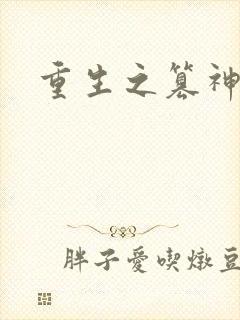 重生之篡神
胖子愛喫燉豆